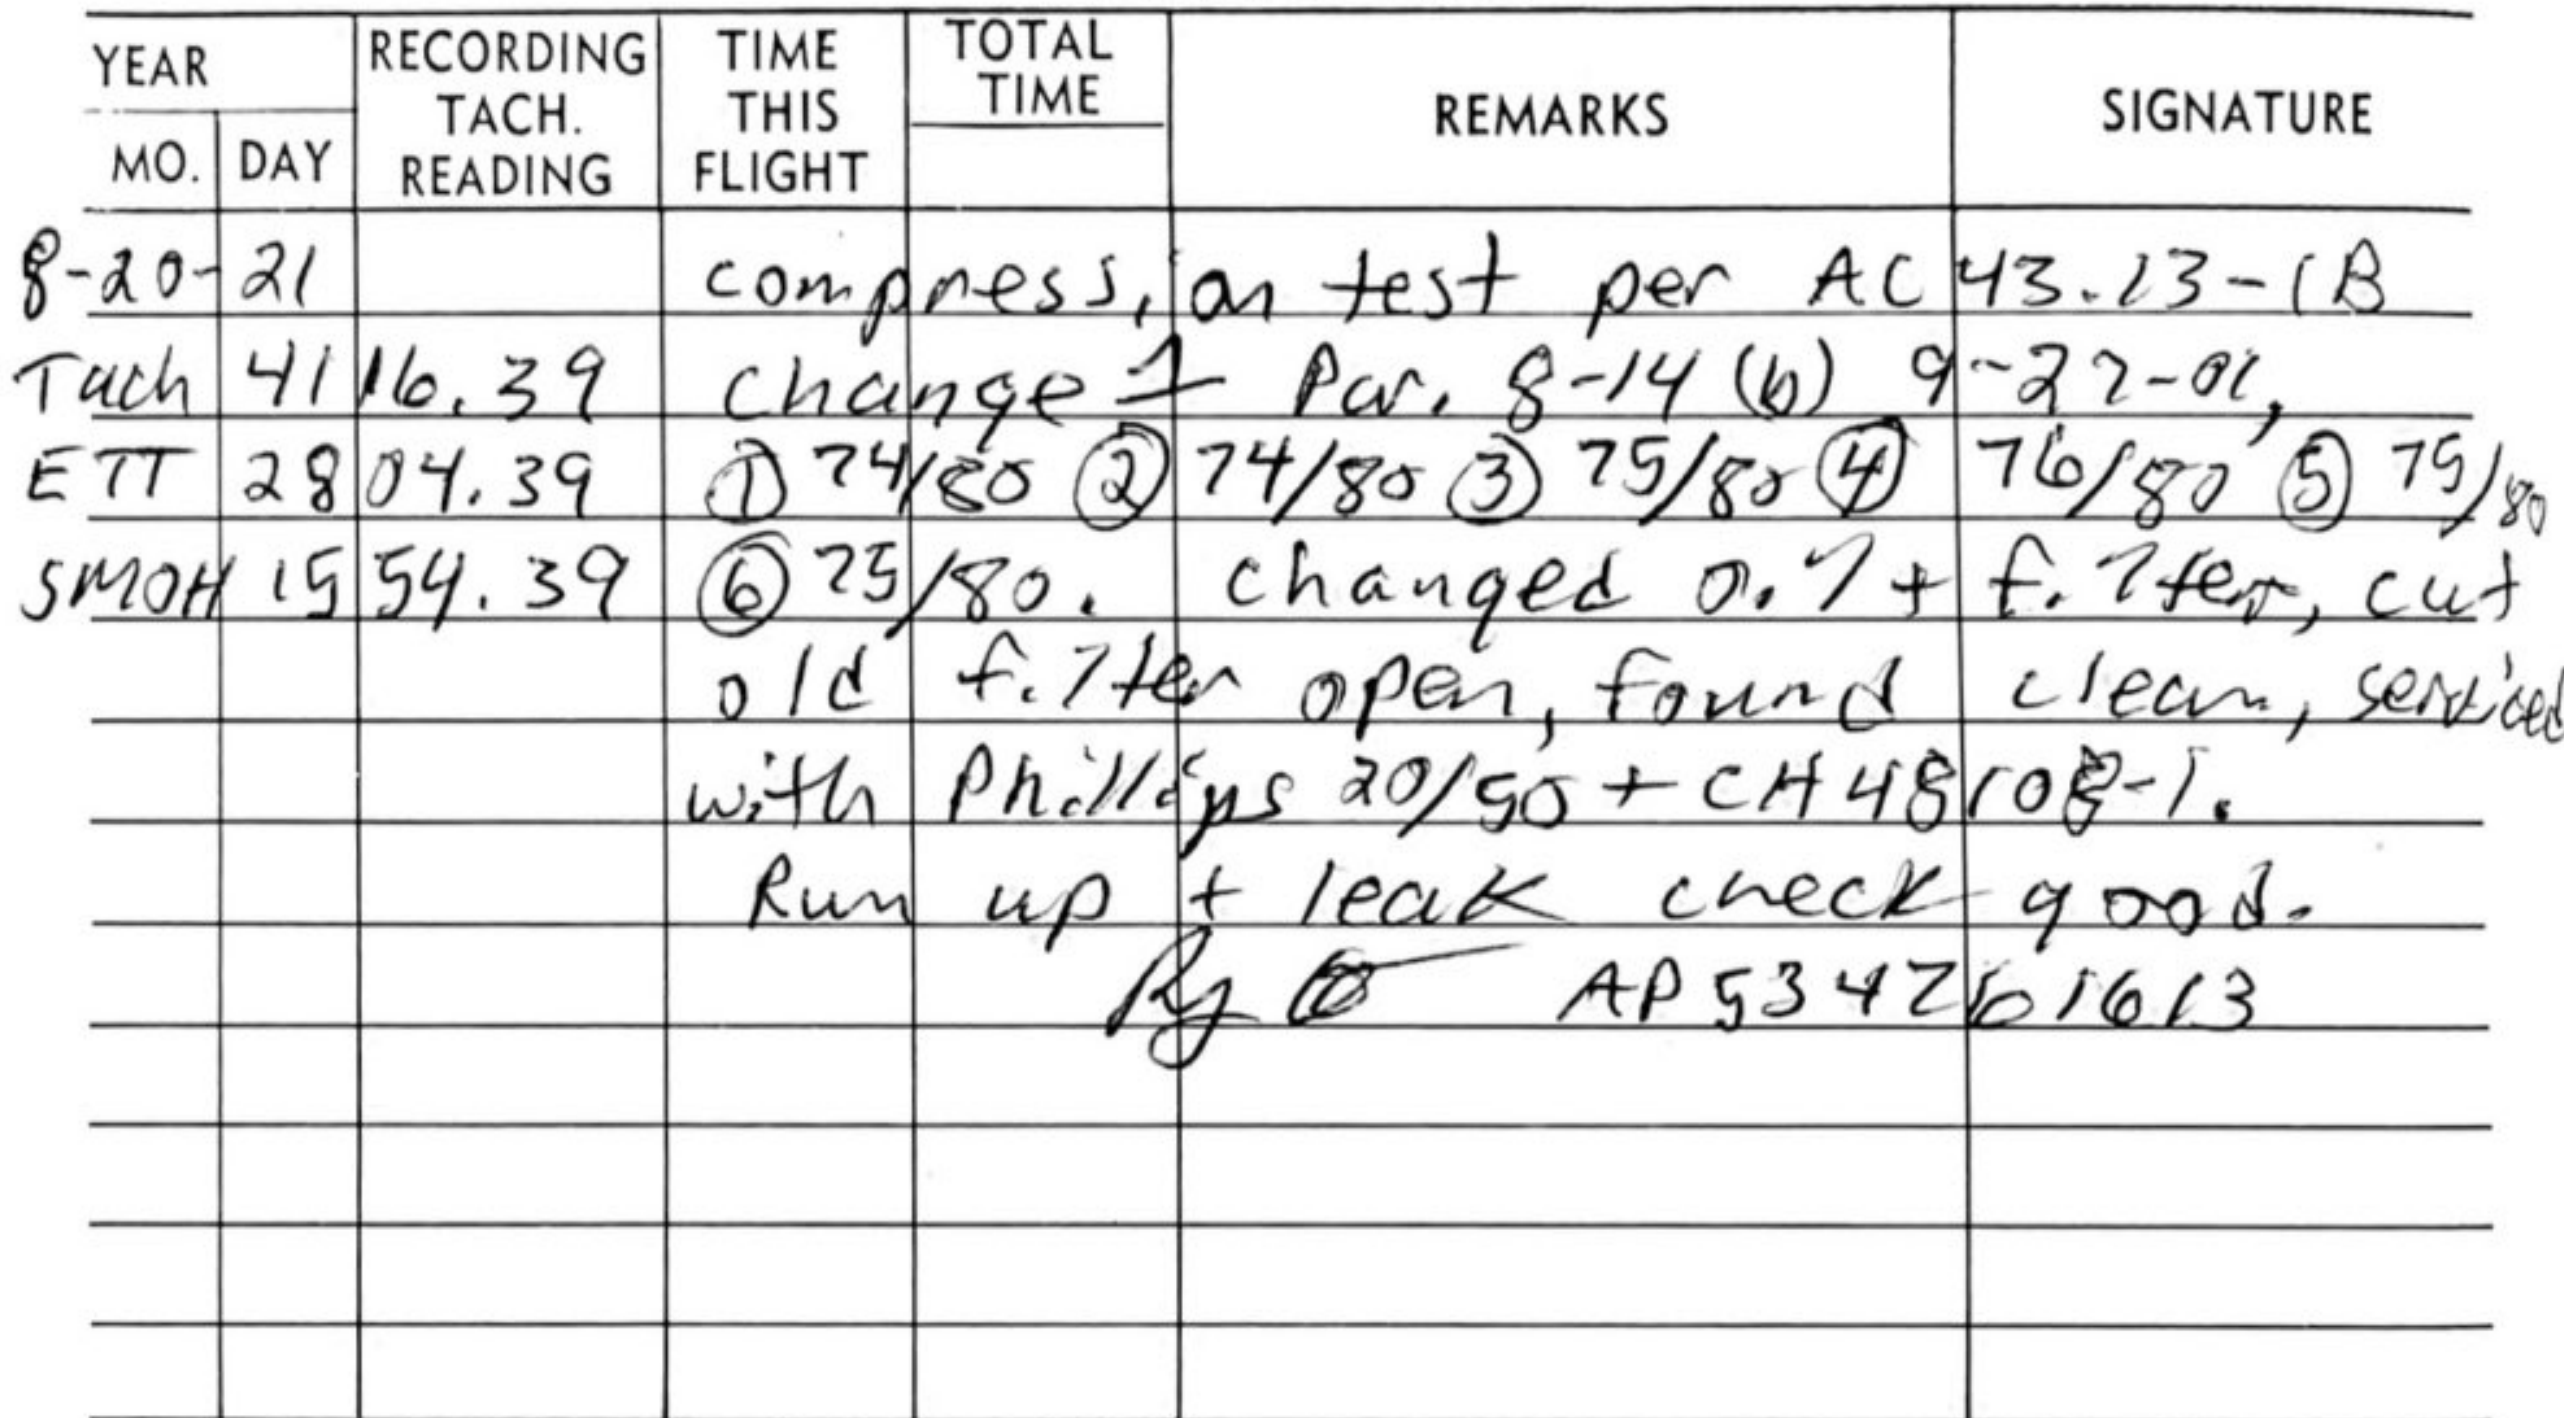 YEAR
MO. DAY
RECORDING TACH. READING
TIME THIS FLIGHT
TOTAL TIME
REMARKS
SIGNATURE
8-20-21 compression test per AC 43.13-1B
Tach 4116.39 change 1 Par. 8-14 (b) 9-27-01,
ETT 2804.39 ① 74/80 ② 74/80 ③ 75/80 ④ 76/80 ⑤ 75/80
SMOH 1554.39 ⑥ 75/80. changed oil + filter, cut
old filter open, found clean, serviced
with Phillips 20/50 + CH48108-1.
Run up + leak check good.
AP 534761613